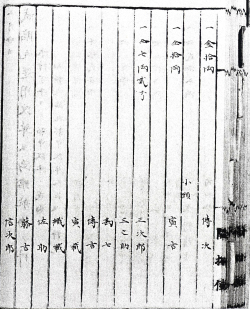 一金拾両
傳次
一金拾両
小頭
寅吉
一金七両弐分
三次郎
三之助
和七
傳吉
寅蔵
織蔵
佐助
藤吉
信次郎